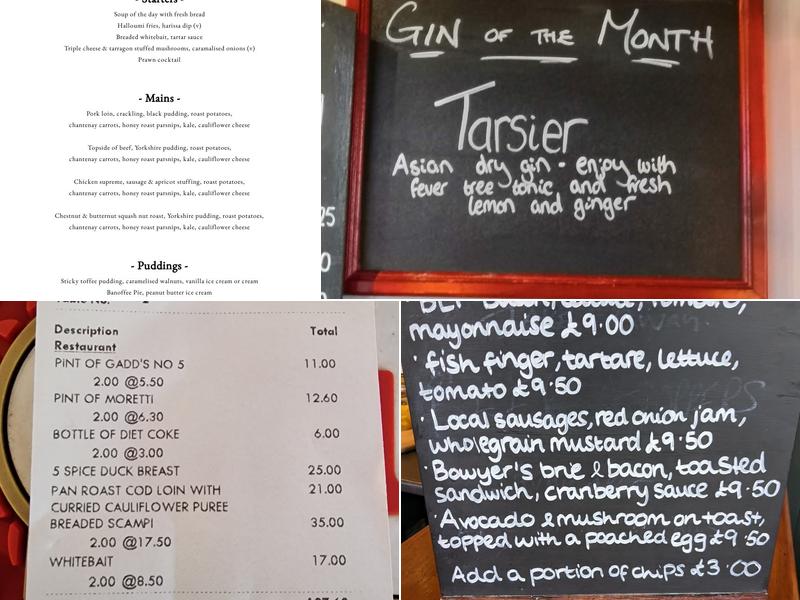 - Starters -
Soup of the day with fresh bread
Halloumi fries, harissa dip (v)
Breaded whitebait, tartar sauce
Triple cheese & tarragon stuffed mushrooms, caramalised onions (v)
Prawn cocktail
- Mains -
Pork loin, crackling, black pudding, roast potatoes,
chantenay carrots, honey roast parsnips, kale, cauliflower cheese
Topside of beef, Yorkshire pudding, roast potatoes,
chantenay carrots, honey roast parsnips, kale, cauliflower cheese
Chicken supreme, sausage & apricot stuffing, roast potatoes,
chantenay carrots, honey roast parsnips, kale, cauliflower cheese
Chestnut & butternut squash nut roast, Yorkshire pudding, roast potatoes,
chantenay carrots, honey roast parsnips, kale, cauliflower cheese
- Puddings -
Sticky toffee pudding, caramelised walnuts, vanilla ice cream or cream
Banoffee Pie, peanut butter ice cream
25
0
GIN OF THE MONTH
Tarsier
Asian dry gin - enjoy with
fever tree tonic and fresh
lemon and ginger
Table No. 2
Description Total
Restaurant
PINT OF GADD'S NO 5 11.00
2.00 @5.50
PINT OF MORETTI 12.60
2.00 @6.30
BOTTLE OF DIET COKE 6.00
2.00 @3.00
5 SPICE DUCK BREAST 25.00
PAN ROAST COD LOIN WITH 21.00
CURRIED CAULIFLOWER PUREE
BREADED SCAMPI 35.00
2.00 @17.50
WHITEBAIT 17.00
2.00 @8.50
BLT Bacon, lettuce, tomato,
mayonnaise £9.00
· fish finger, tartare, lettuce,
tomato £9.50
· Local sausages, red onion jam,
wholegrain mustard £9.50
· Bowyer's brie & bacon, toasted
sandwich, cranberry sauce £9.50
· Avocado & mushroom on toast,
topped with a poached egg £9.50
Add a portion of chips £3.00